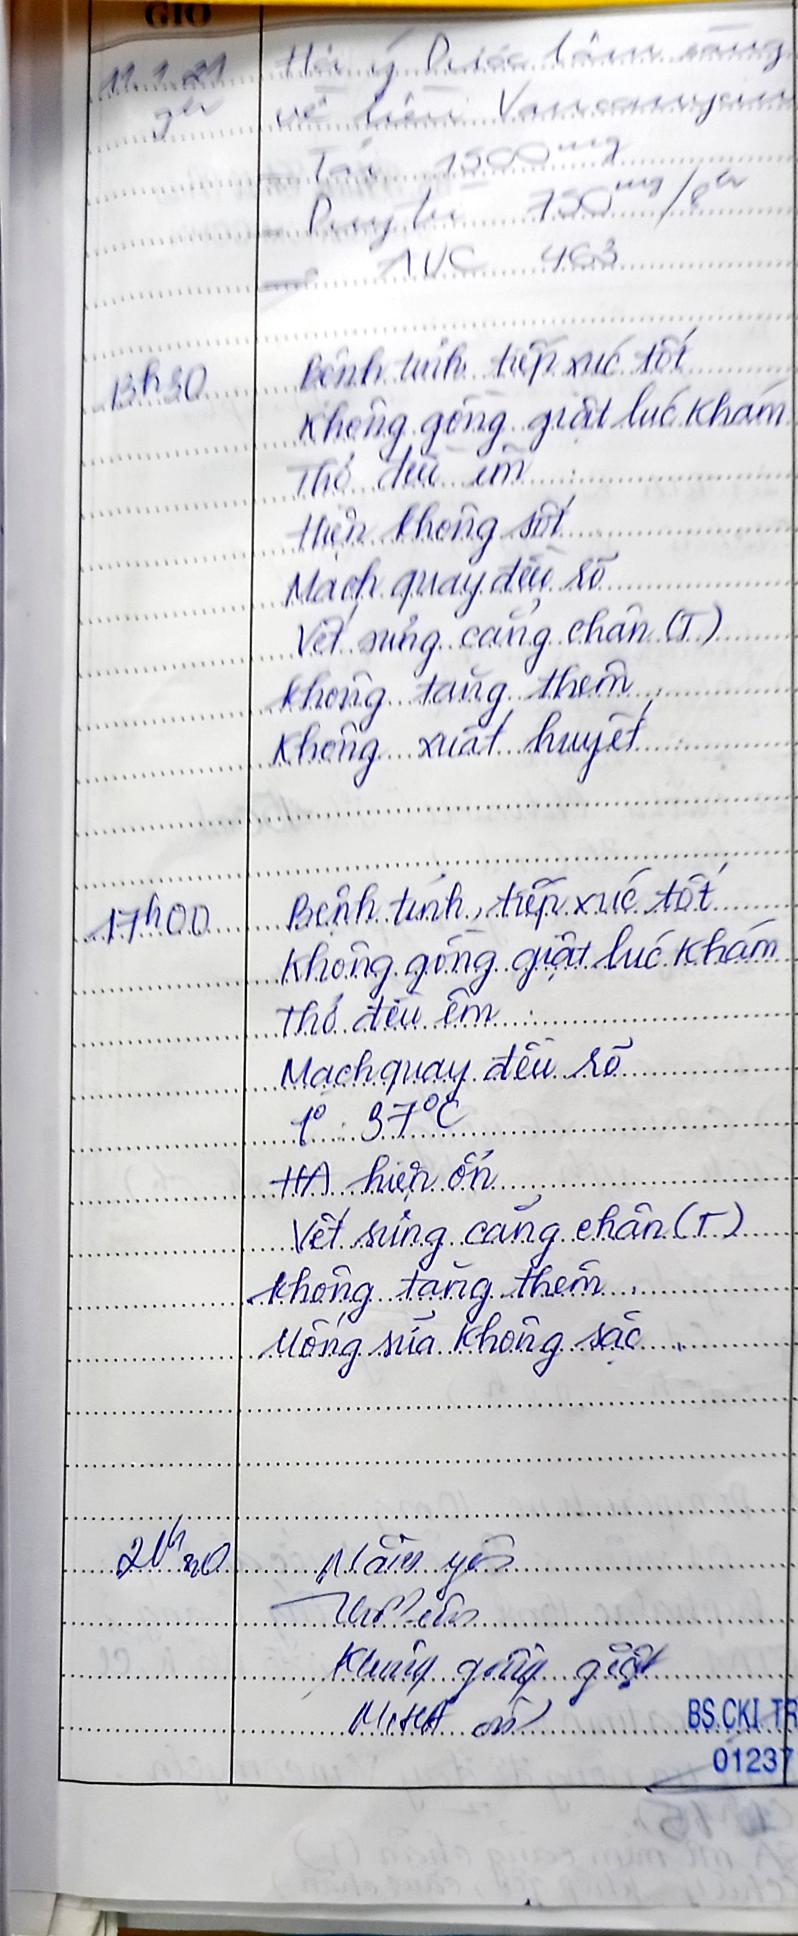 GIỜ
11.1.21 Hỏi ý Dược lâm sàng
9h về liều Vancomycin
Tải 1500mg
Duy trì 750mg/8h
→ AUC 463
13h30 Bệnh tỉnh tiếp xúc tốt
Không gồng giật lúc khám
Thở đều êm
Hiện không sốt
Mạch quay đều rõ
Vết sưng cẳng chân (T)
không tăng thêm
Không xuất huyết
17h00 Bệnh tỉnh, tiếp xúc tốt
Không gồng giật lúc khám
Thở đều êm
Mạch quay đều rõ
t° : 37°C
HA hiện ổn
Vết sưng cẳng chân (T)
không tăng thêm
Uống sữa không sặc
Nằm yên
Thở êm
Không gồng giật
M, HA ổn
BS.CKI TR
01237